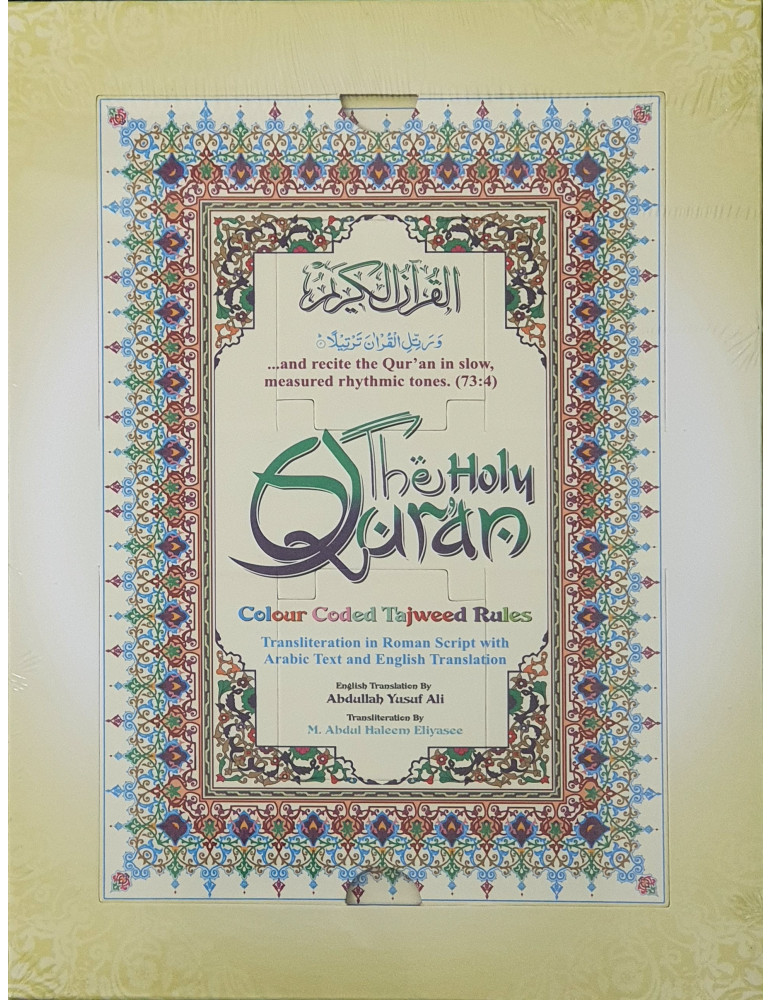 القرآن الكريم
وَرَتِّلِ الْقُرْاٰنَ تَرْتِيْلًا
...and recite the Qur'an in slow,
measured rhythmic tones. (73:4)
The Holy
Qur'an
Colour Coded Tajweed Rules
Transliteration in Roman Script with
Arabic Text and English Translation
English Translation By
Abdullah Yusuf Ali
Transliteration By
M. Abdul Haleem Eliyasee